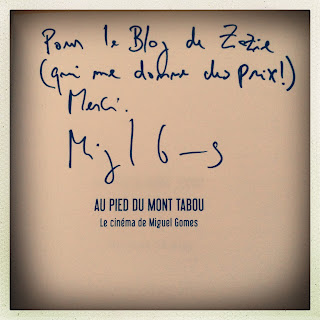 Pour le Blog de Zazie
(qui me donne des prix!)
Merci.
AU PIED DU MONT TABOU
Le cinéma de Miguel Gomes